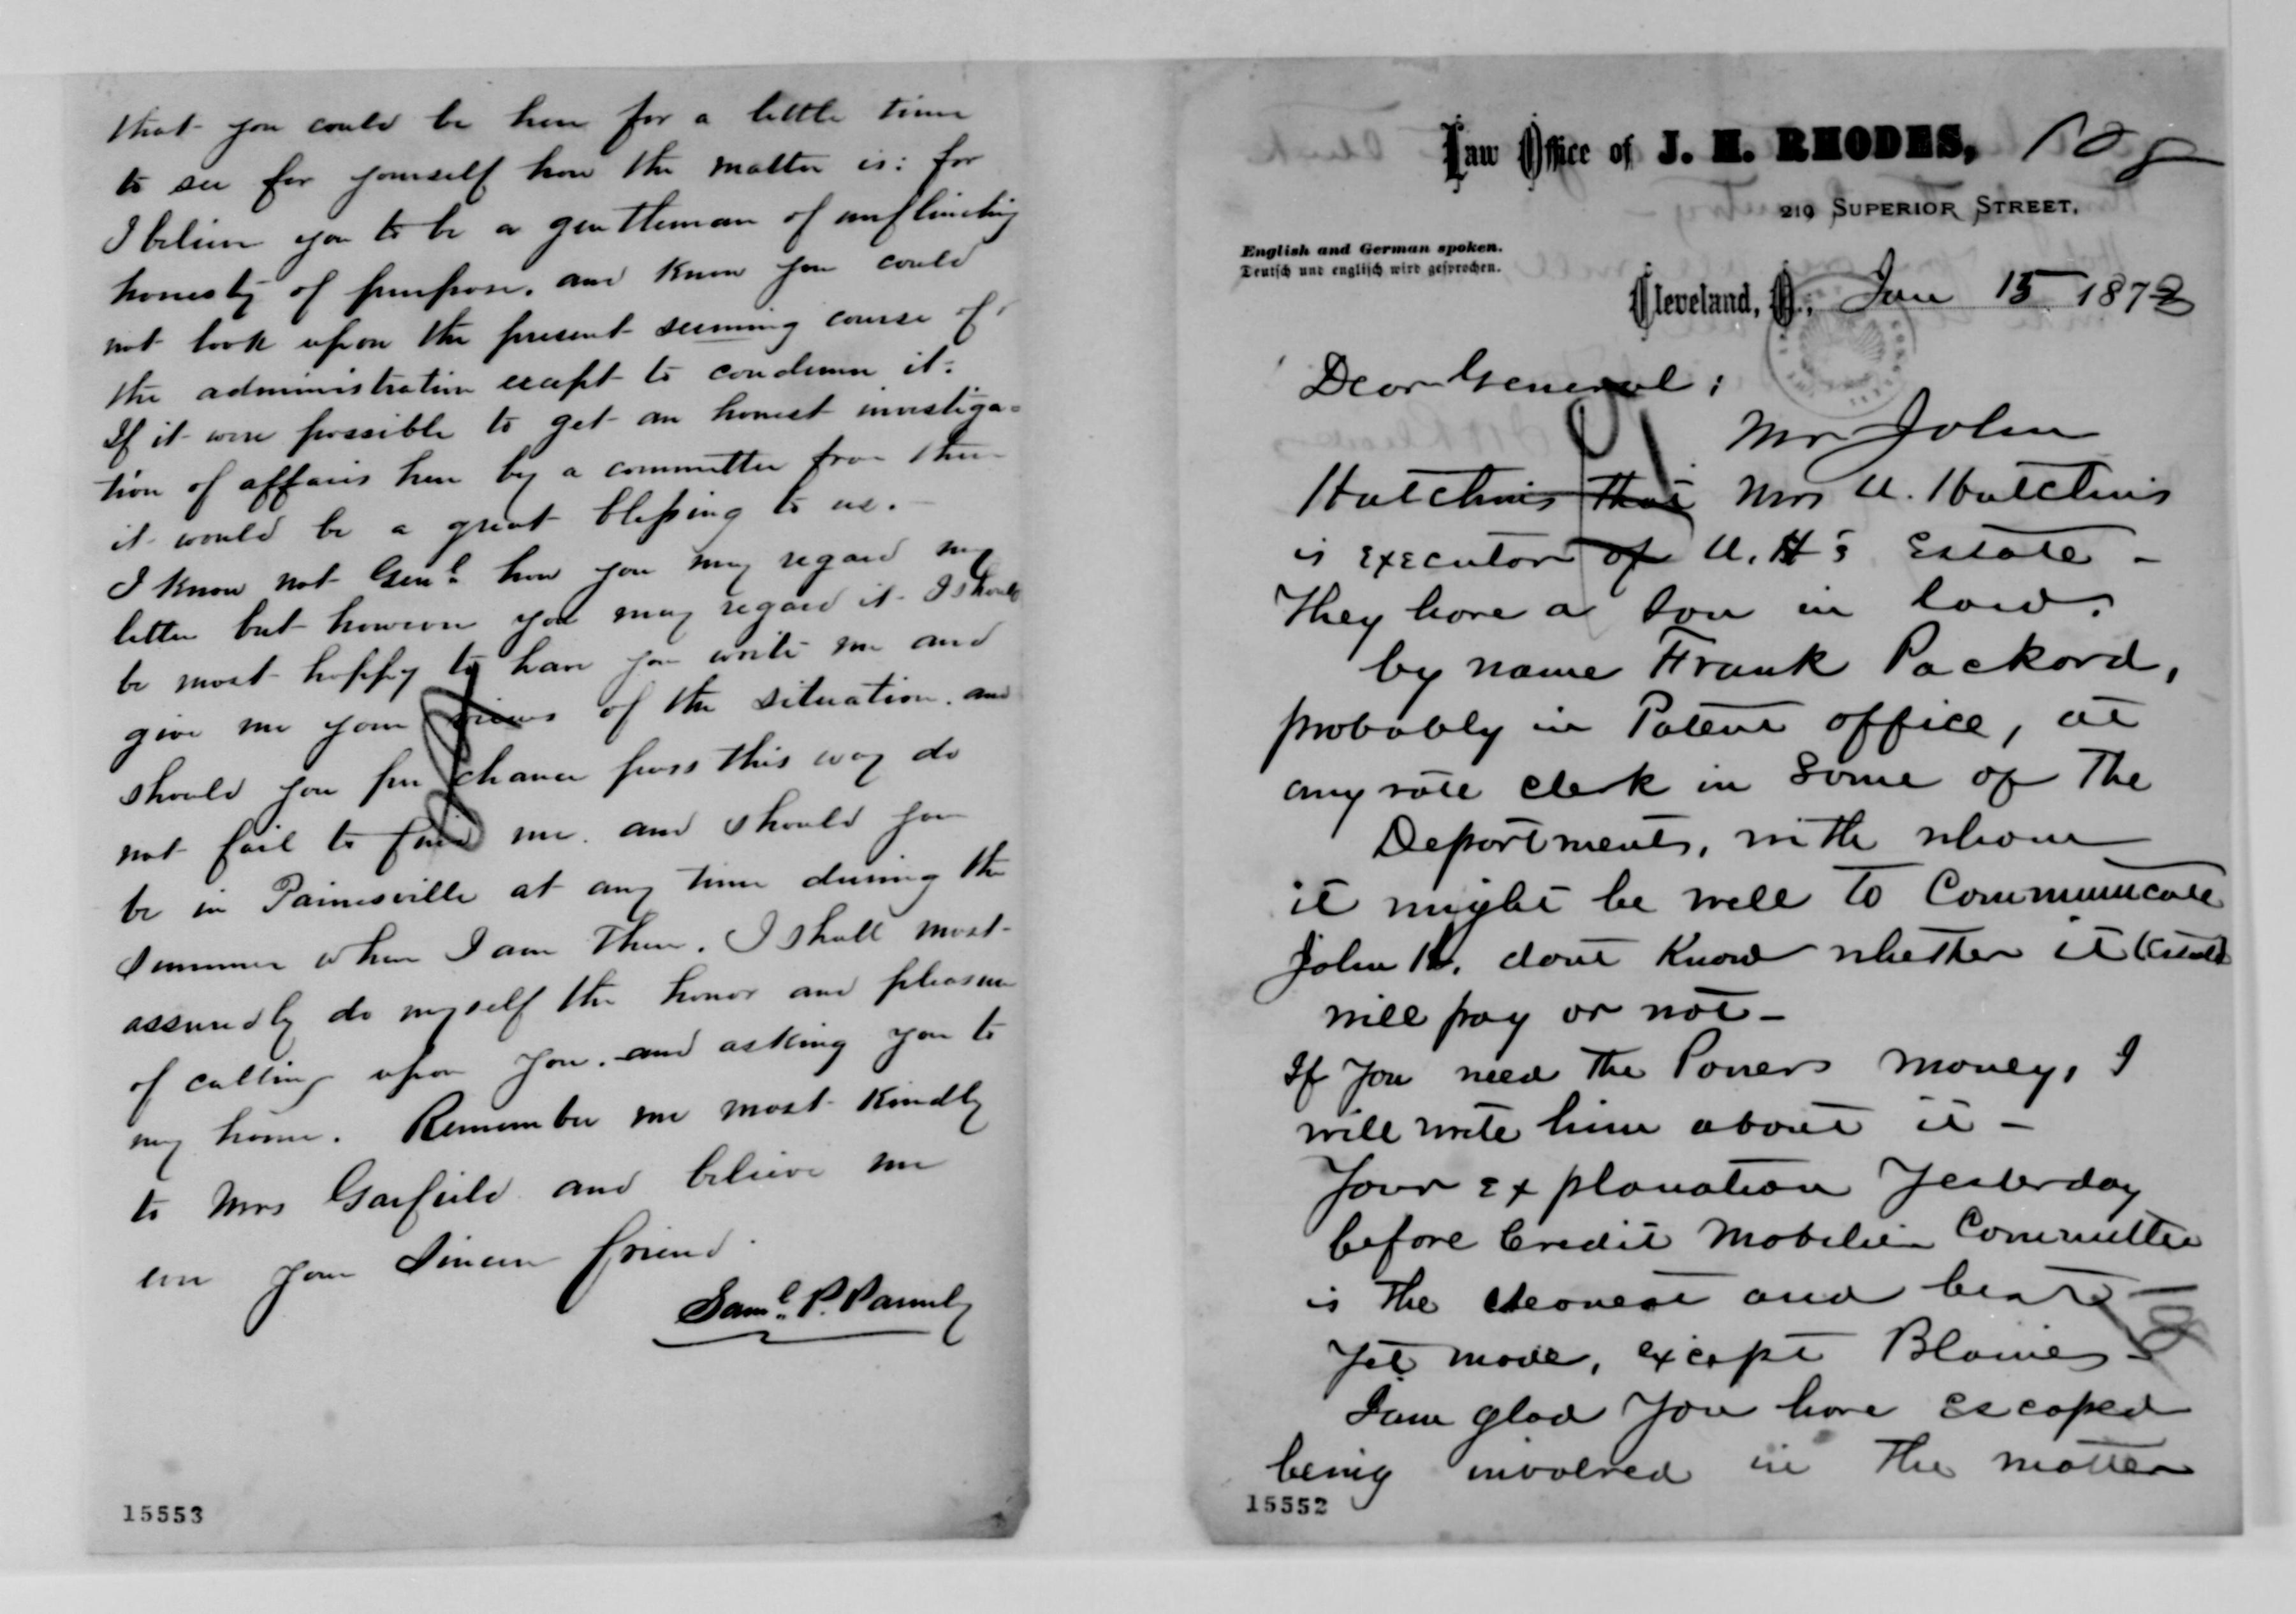 that you could be here for a little time
to see for yourself how the matter is: for
I believe you to be a gentleman of unflinching
honesty of purpose. and know you could
not look upon the present seeming course of
the administration except to condemn it.
If it were possible to get an honest investiga=
tion of affairs here by a committee from there
it would be a great blessing to us. —
I know not Genl. how you may regard my
letter but however you may regard it I should
be most happy to have you write me and
give me your views of the situation. and
should you per chance pass this way do
not fail to find me. and should you
be in Painesville at any time during the
summer when I am there. I shall most
assuredly do myself the honor and pleasure
of calling upon you. and asking you to
my home. Remember me most kindly
to Mrs Garfield and believe me
ever your sincere friend.
Saml. P. Parmly
15553
Law Office of J. H. RHODES,
219 SUPERIOR STREET.
English and German spoken.
Deutsch und englisch wird gesprochen.
Cleveland, O., Jan 15 1873
Dear General;
Mr John
Hutchins that Mrs U. Hutchins
is executor of U. H's Estate —
They have a son in law.
by name Frank Packard,
probably in Patent office, at
any rate clerk in some of the
Departments, with whom
it might be well to communicate
John H. dont know whether it (Estate)
will pay or not —
If you need the Powers money, I
will write him about it —
Your explanation yesterday
before Credit Mobilier Committee
is the clearest and best
yet made, except Blaines —
I am glad you have escaped
being involved in the matter
15552